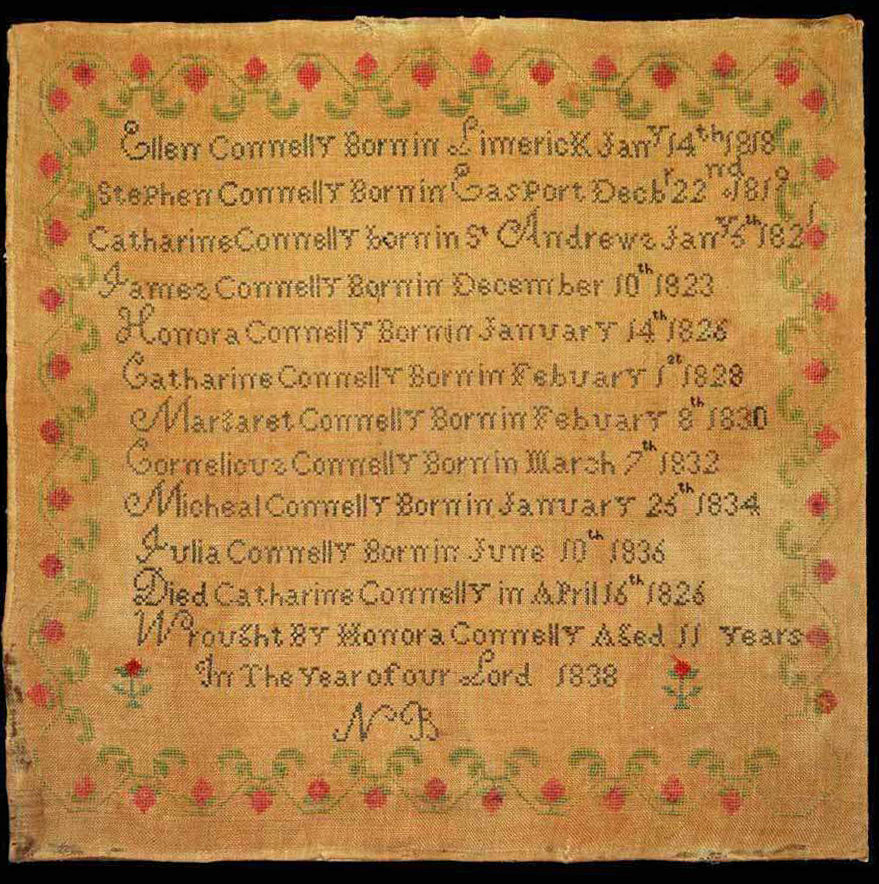 Ellen Connelly Born in Limerick Jany 14th 1818
Stephen Connelly Born in Easport Decbr 22nd 1819
Catharine Connelly born in St Andrews Jany 6th 1821
James Connelly Born in December 10th 1823
Honora Connelly Born in January 14th 1826
Catharine Connelly Born in Febuary 1st 1828
Margaret Connelly Born in Febuary 8th 1830
Cornelious Connelly Born in March 7th 1832
Micheal Connelly Born in January 26th 1834
Julia Connelly Born in June 10th 1836
Died Catharine Connelly in April 16th 1826
Wrought By Honora Connelly Aged 11 years
In The year of our Lord 1838
NB